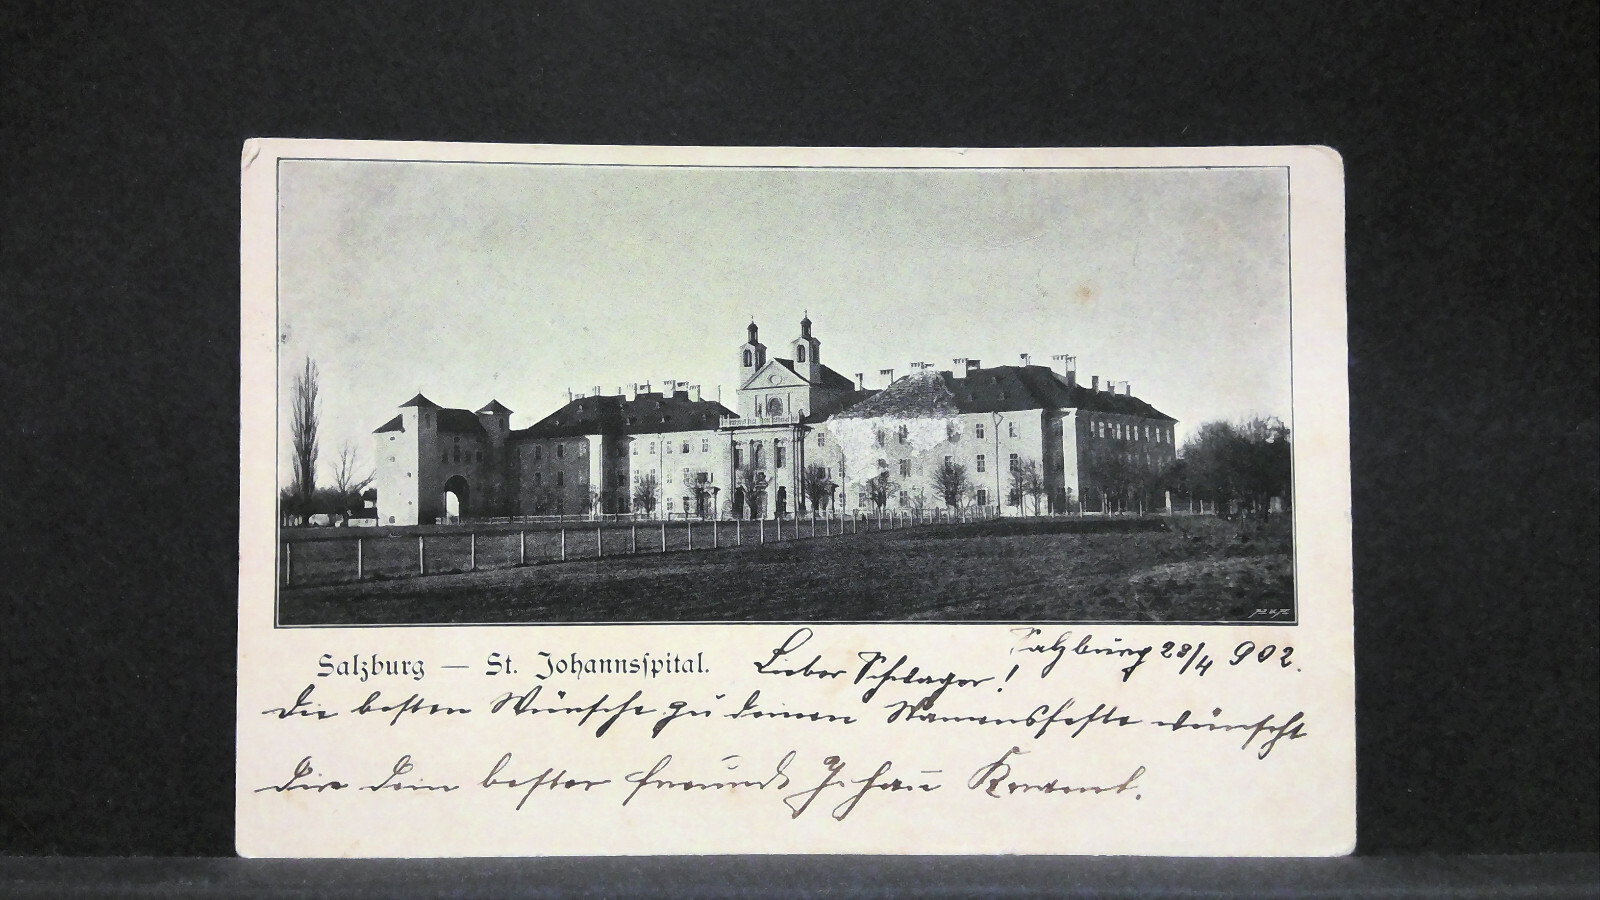 Salzburg — St. Johannsspital.
Salzburg 28/4 902.
Lieber Schwager!
Die besten Wünsche zu deinem Namensfeste wünscht
dir dein bester Freund Johann